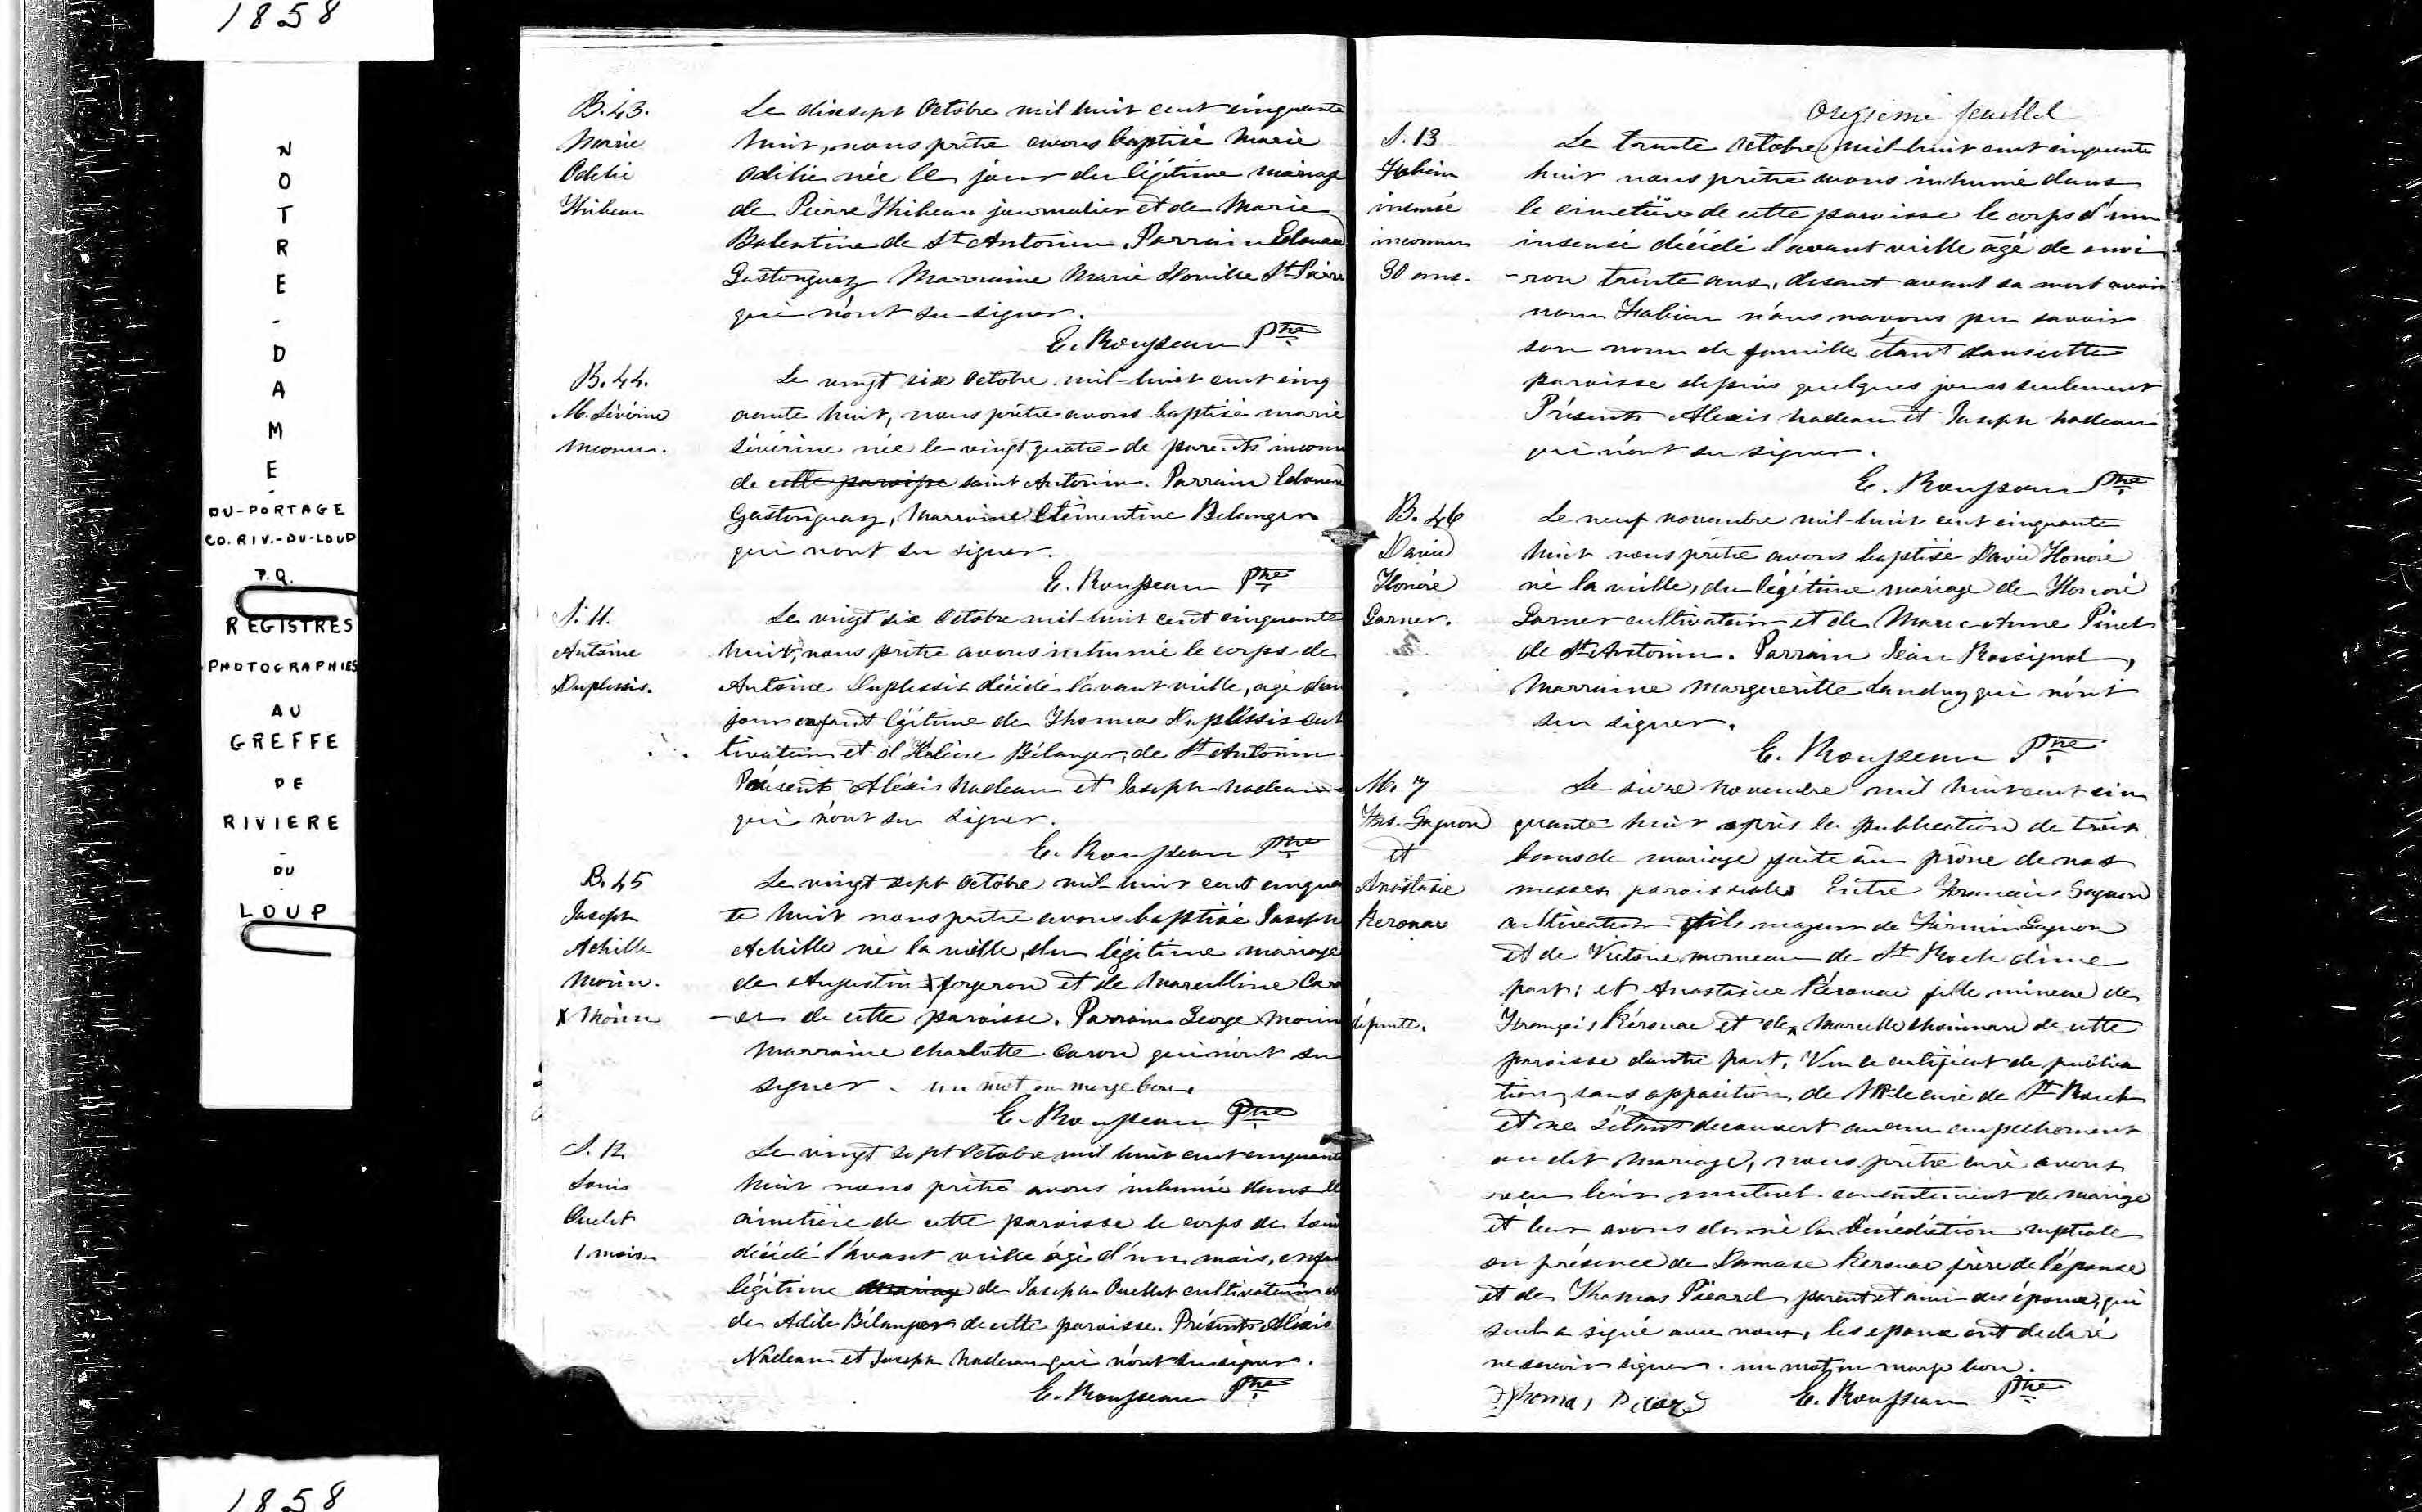 1858
NOTRE-DAME-
DU-PORTAGE
CO. RIV.-DU-LOUP
P.Q.
REGISTRES
PHOTOGRAPHIES
AU
GREFFE
DE
RIVIERE
-
DU
-
LOUP
1858
B. 43.
Marie
Odelie
Thibeau
Le dixsept Octobre mil huit cent cinquante
huit, nous prêtre avons baptisé Marie
Odilie née le jour du légitime mariage
de Pierre Thibeau journalier et de Marie
Balentine de St Antonin. Parrain Edouard
Gastonguay Marraine Marie St Pierre
qui n'ont su signer.
E. Rousseau Ptre
B. 44.
M. Sévérine
Inconnu.
Le vingt six Octobre mil-huit cent cinq
uante huit, nous prêtre avons baptisé marie
Sévérine née le vingt quatre de parents inconn
de cette paroisse saint Antonin. Parrain Edouard
Gastonguay, Marraine Clémentine Belanger
qui n'ont su signer.
E. Rousseau Ptre
S. 11.
Antoine
Duplessis.
Le vingt six Octobre mil-huit cent cinquante
huit, nous prêtre avons inhumé le corps de
Antoine Duplessis décédé l'avant veille, agé d'un
jour enfant légitime de Thomas Duplessis cul
tivateur et d'Hélène Bélanger, de St Antonin
Présents Aléxis Nadeau et Joseph Nadeau
qui n'ont su signer.
E. Rousseau Ptre
B. 45
Joseph
Achille
Morin.
X Morin
Le vingt sept Octobre mil-huit cent cinquan
te huit nous prêtre avons baptisé Joseph
Achille né la veille, du légitime mariage
de Augustin X forgeron et de Marcelline Car
-on de cette paroisse. Parrain George Morin
Marraine Charlotte Caron qui n'ont su
signer. un mot en marge bon.
E. Rousseau Ptre
S. 12.
Louis
Ouelet
1 mois
Le vingt sept Octobre mil huit cent cinquante
huit nous prêtre avons inhumé dans le
cimetière de cette paroisse le corps de Louis
décédé l'avant veille âgé d'un mois, enfan
légitime mariage de Joseph Ouellet cultivateur et
de Adéle Bélanger de cette paroisse. Présents Aléxis
Nadeau et Joseph Nadeau qui n'ont su signer.
E. Rousseau Ptre
Onzieme feuillet
S. 13
Fabien
insensé
inconnu
30 ans.
Le trente Octobre mil-huit cent cinquante
huit nous prêtre avons inhumé dans
le cimetière de cette paroisse le corps d'un
insensé décédé l'avant veille âgé de envi
-ron trente ans, disant avant sa mort avoir
nom Fabien nous n'avons pu savoir
son nom de famille étant dans cette
paroisse depuis quelques jours seulement
Présents Alexis Nadeau et Joseph Nadeau
qui n'ont su signer.
E. Rousseau Ptre
B. 46
David
Honoré
Garner.
Le neuf novembre mil-huit cent cinquante
huit nous prêtre avons baptisé David Honoré
né la veille, du légitime mariage de Honoré
Garner cultivateur et de Marie Anne Pinet
de St Antonin. Parrain Jean Rossignol,
Marraine Margueritte Landry qui n'ont
su signer.
E. Rousseau Ptre
M. 7
Frs. Gagnon
et
Anastasie
Kerouac
Le seize Novembre mil huit cent cin
quante huit après la publication de trois
bans de mariage faite au prône de nos
messes paroissiales Entre François Gagnon
cultivateur fils majeur de Firmin Gagnon
et de Victoire moreau de St Roch d'une
part; et Anastasie Kérouac fille mineure de
défunte.
François Kérouac et de Marcelle Chouinard de cette
paroisse d'autre part, Vu le certificat de publica
tion, sans opposition, de Mr le curé de St Roch
et ne s'étant decouvert aucun empechement
au dit mariage, nous prêtre curé avons
reçu leur mutuel consentement de mariage
et leur avons donné la bénédiction nuptiale
en présence de Damase Kerouac frère de l'épouse
et de Thomas Picard parent et ami des époux, qui
seul a signé avec nous, les epoux ont declaré
ne savoir signer. un mot en marge bon.
Thomas Picard E. Rousseau Ptre